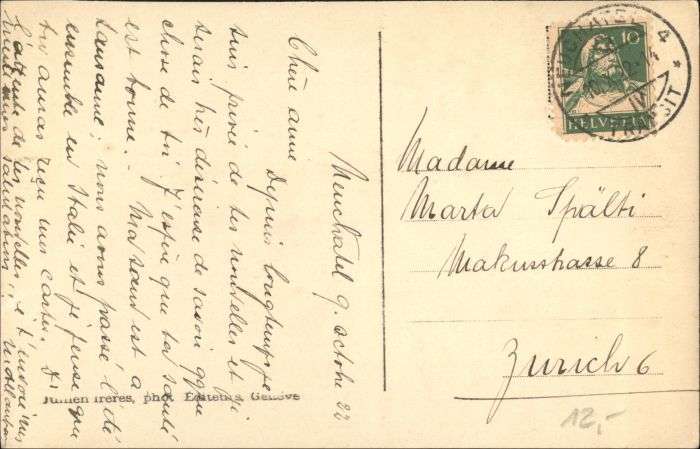 Neuchatel 9. octobre 22
Chère amie
Depuis longtemps je
suis privée de tes nouvelles et je
serais très désireuse de savoir qque
chose de toi. J'espère que ta santé
est bonne. Ma sœur est à
Lausanne; nous avons passé l'été
ensemble en Italie et je pense que
tu auras reçu mes cartes.
L'attente de tes nouvelles, je t'envoie mes
salutations
Jullien frères, phot. Editeurs, Genève
10
HELVETIA
TRANSIT
Madame
Marta Spälti
Makusstrasse 8
Zurich 6
12,-